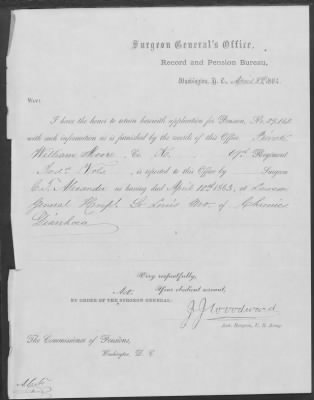 Surgeon General's Office,
Record and Pension Bureau,
Washington, D. C., April 8th 1864.
SIR:
I have the honor to return herewith application for Pension, No.
with such information as is furnished by the records of this Office. Private
William Moore, Co. K. 67th Regiment
Ind. Vols. is reported to this Office by Surgeon
C. T. Alexander as having died April 12th 1863, at Lawson
General Hospl. St. Louis Mo. of Chronic
Diarrhoea
Very respectfully,
Your obedient servant,
BY ORDER OF THE ACT. SURGEON GENERAL:
J. J. Woodward
Ass. Surgeon, U. S. Army.
The Commissioner of Pensions,
Washington, D. C.